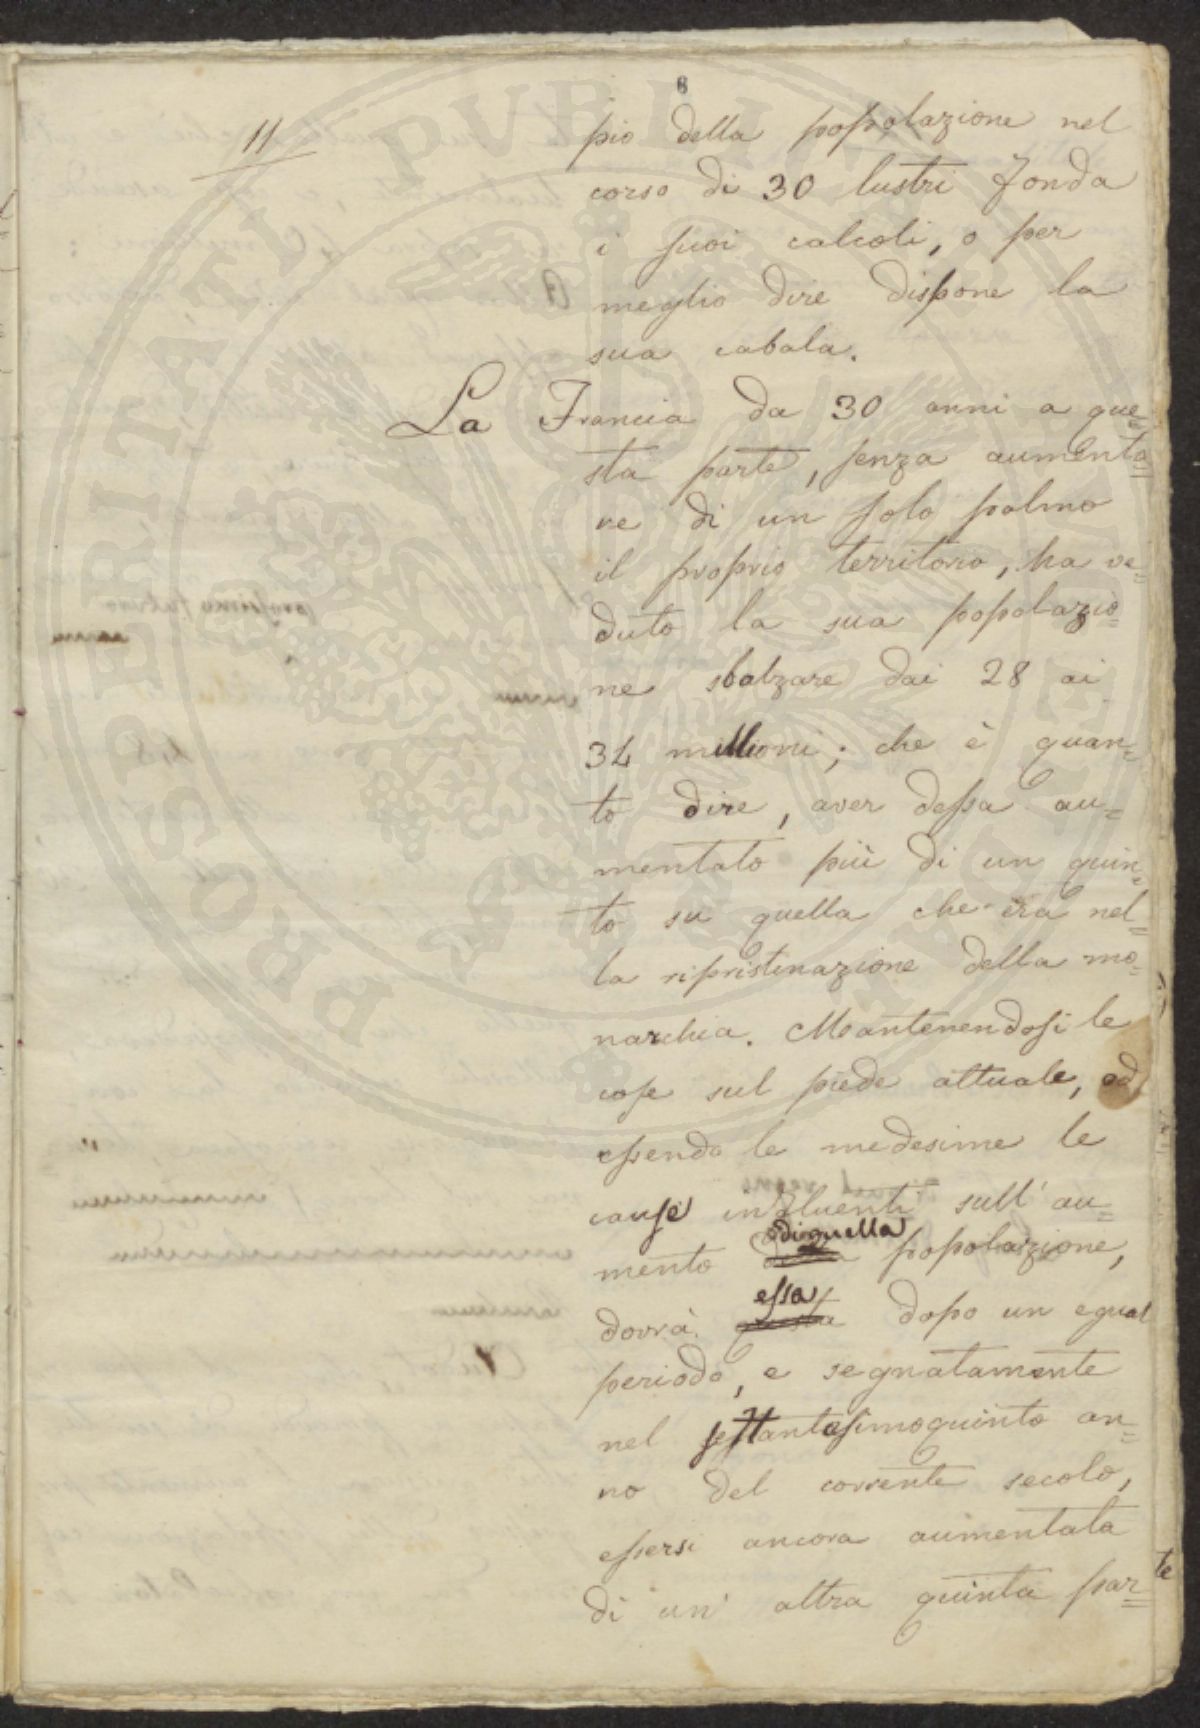 6
11
pio della popolazione nel
corso di 30 lustri fonda
i suoi calcoli, o per
meglio dire dispone la
sua cabala.
La Francia da 30 anni a que=
sta parte, senza aumenta=
re di un solo palmo
il proprio territorio, ha ve=
duto la sua popolazio=
ne sbalzare dai 28 ai
34 millioni; che è quan=
to dire, aver dessa au=
mentato più di un quin=
to su quella che era nel=
la ripristinazione della mo=
narchia. Mantenendosi le
cose sul piede attuale, ed
essendo le medesime le
cause influenti sull' au=
mento di quella popolazione,
dovrà essa dopo un egual
periodo, e segnatamente
nel settantesimoquinto an=
no del corrente secolo,
essersi ancora aumentata
di un' altra quinta par=
te
PROSPERITATI PVBLICAE